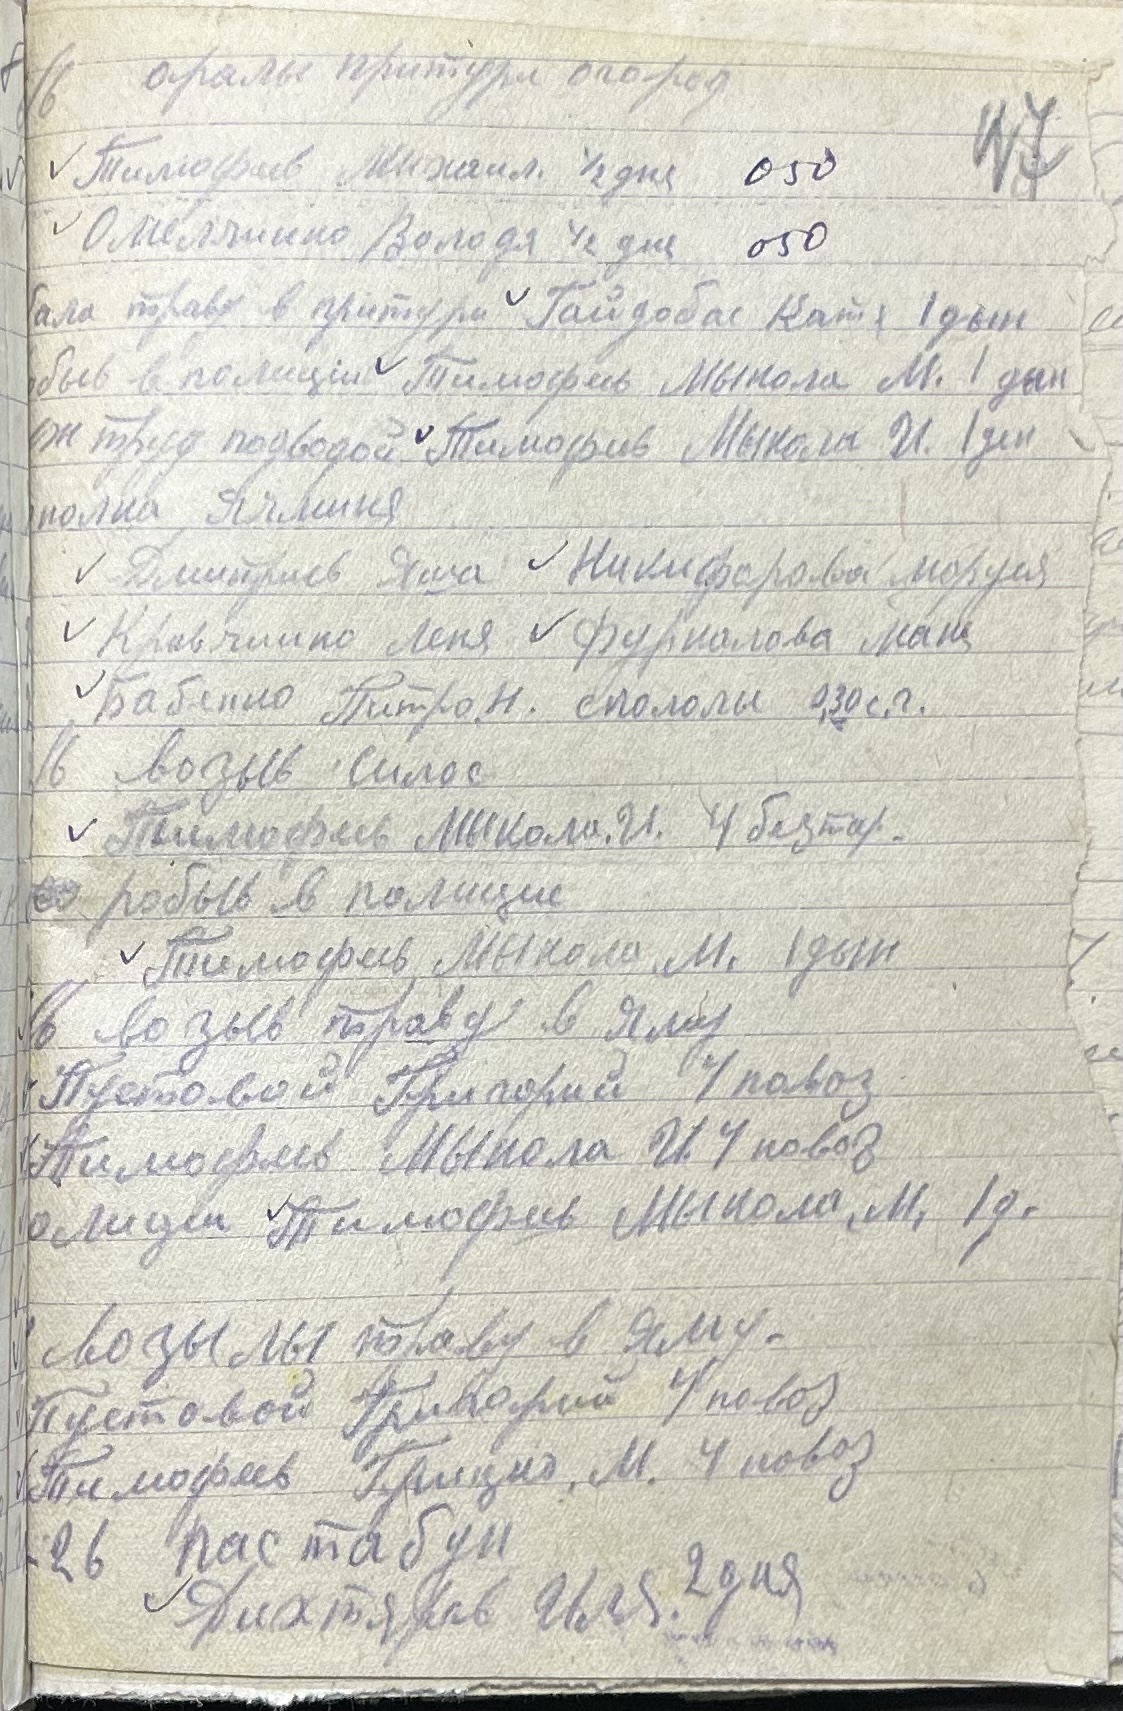 оралы притури огород
N 7
Тимофеев Мыхаил. 1/2 дня 050
Омелчинко Володя 1/2 дня 050
бала траву в притури Гайдобас Катя 1 дын
обыв в полиции Тимофеев Мыкола М. 1 дын
труд подводой Тимофеев Мыкола И. 1 ден
полка Ячминя
Дмитриев Яша Никифорова Моруся
Кравчинко Леня Фурколова Маня
Бабенко Питро Н. спололы 0,30 с.г.
возыв силос
Тимофеев Мыкола. И. 4 безтар.
робыв в полицие
Тимофеев Мыкола М. 1 дын
возыв траву в яму
Пустовой Григорий 4 повоз
Тимофеев Мыкола И. 4 повоз
олиции Тимофеев Мыкола М. 1 д.
возылы траву в яму.
Пустовой Григорий 4 повоз
Тимофеев Грицко, М. 4 повоз
26 пас табун
Дихтярев Иля. 2 дня